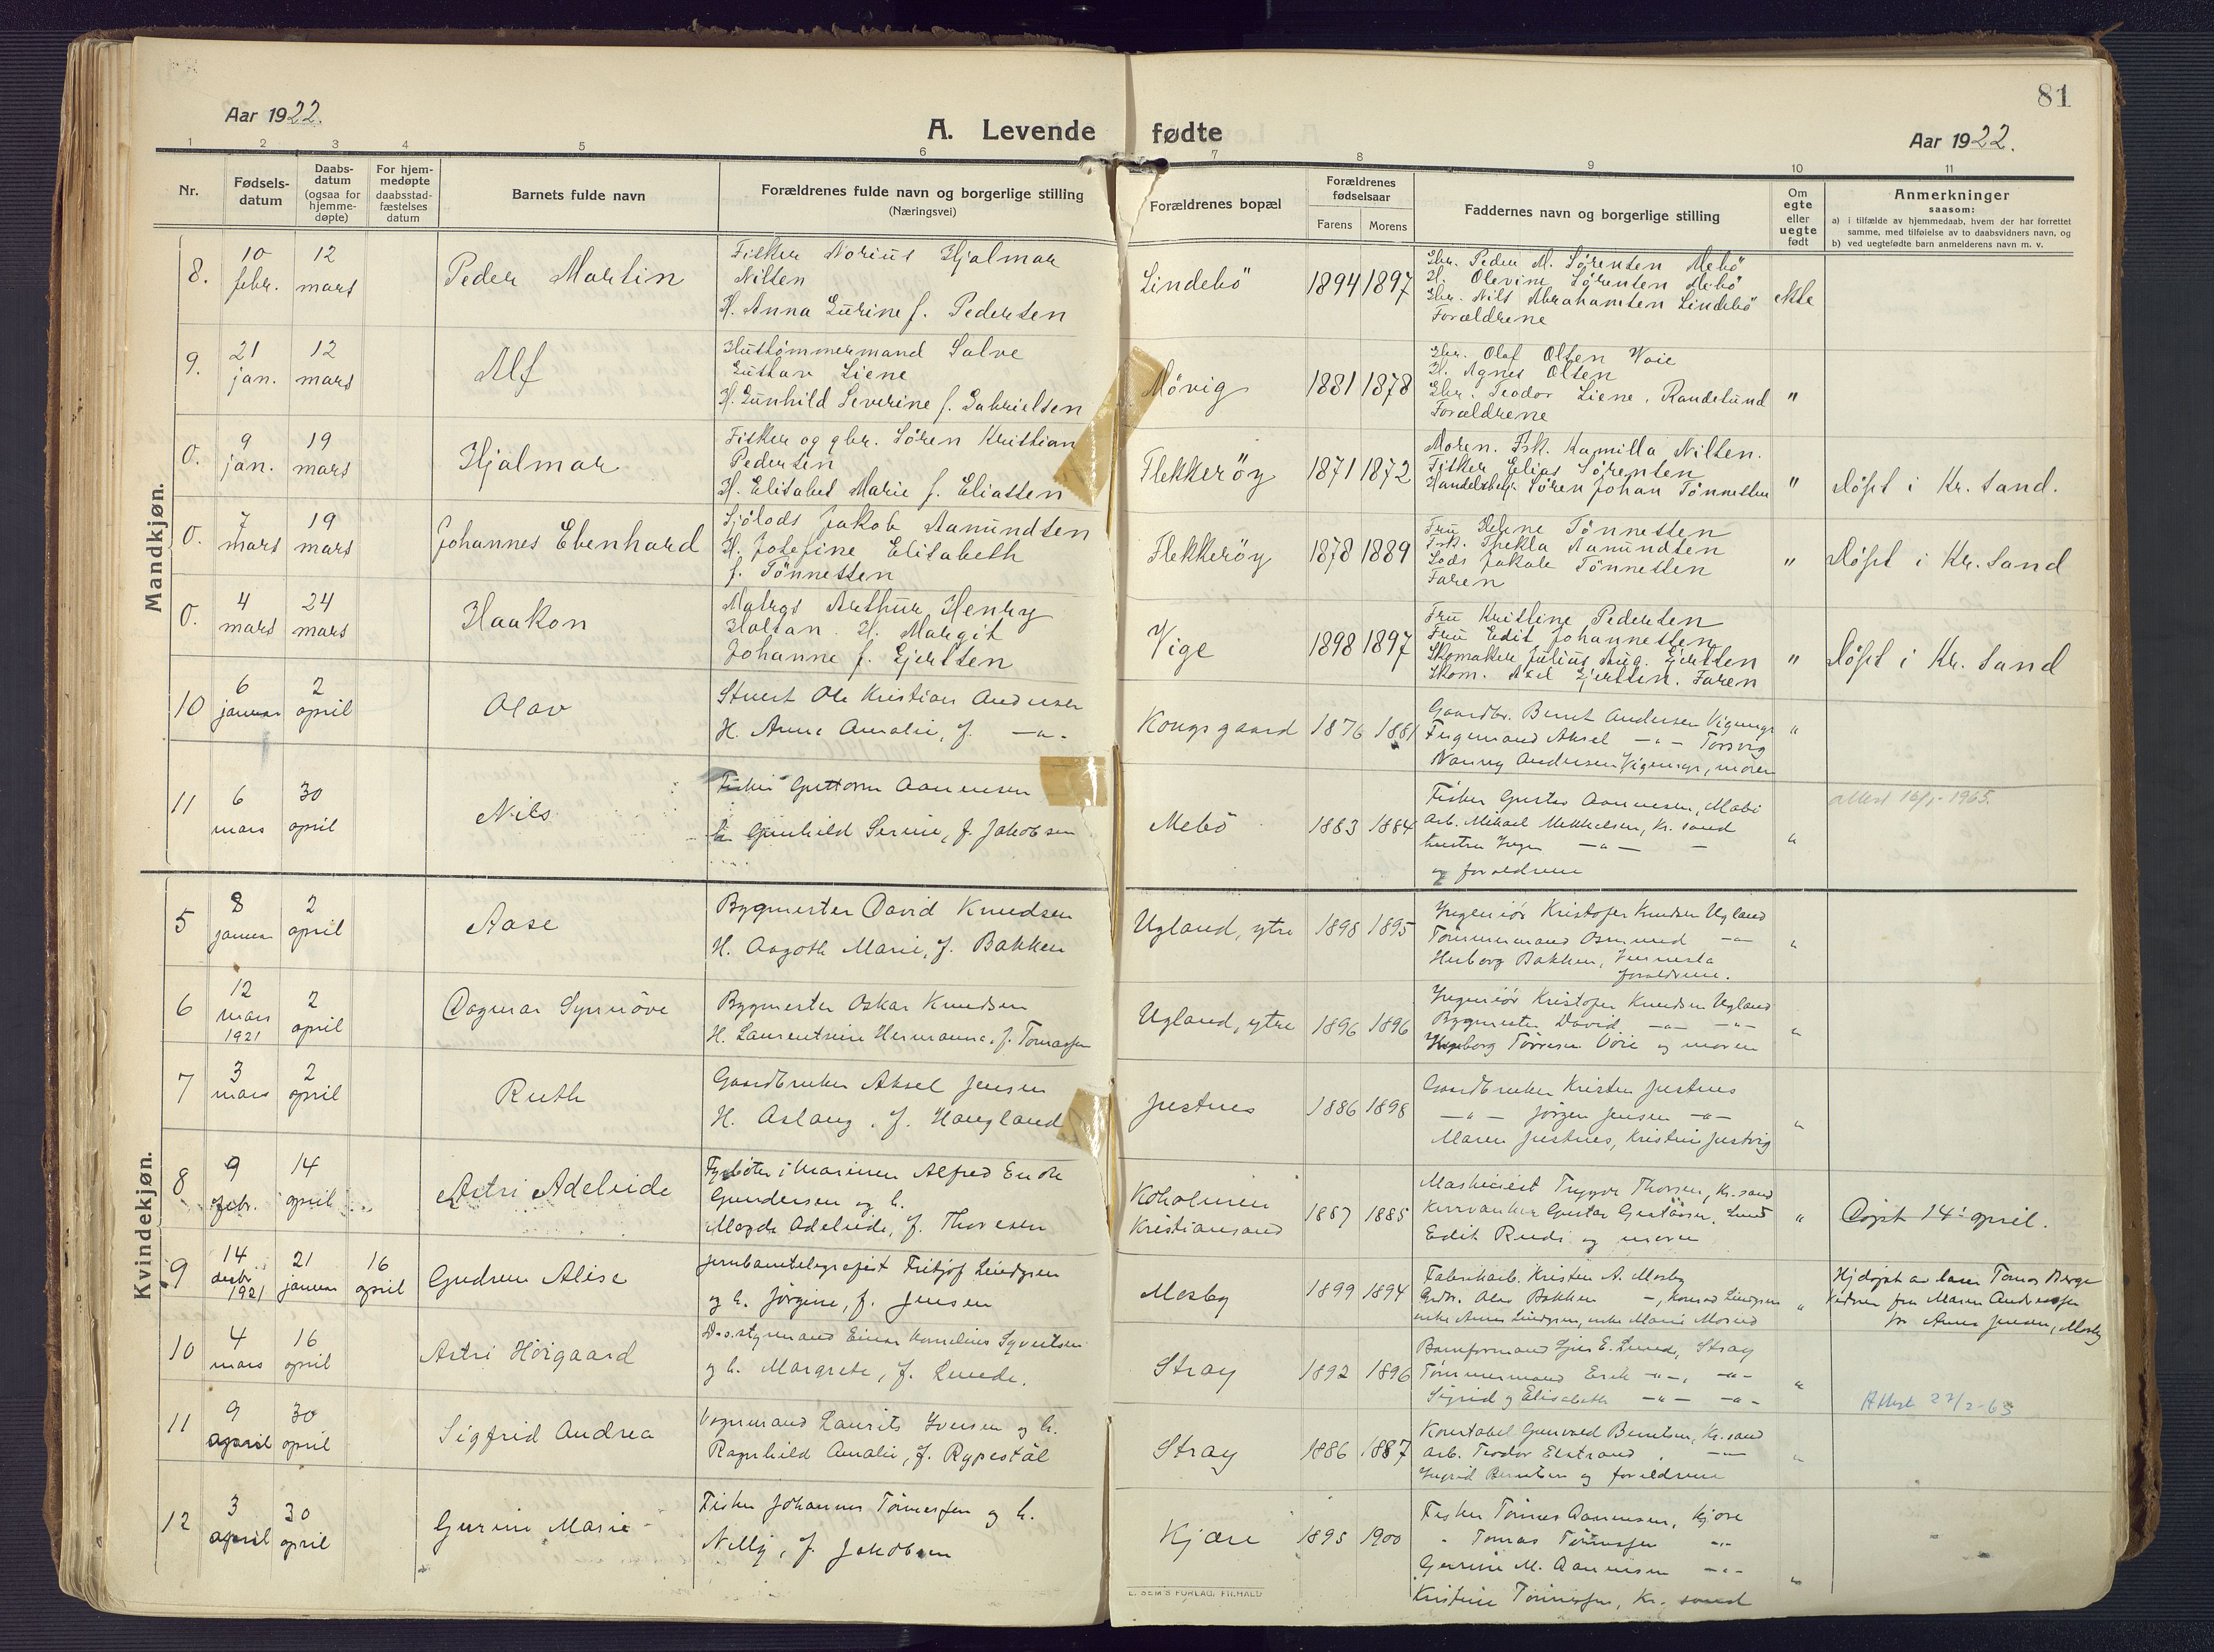 81
Aar 1922.
A. Levende fødte
Aar 1922.
1 2 3 4 5 6 7 8 9 10 11
Nr.
Fødsels-
datum
Daabs-
datum
(ogsaa for
hjemme-
døpte)
For hjem-
medøpte
daabsstad-
fæstelses
datum
Barnets fulde navn
Forældrenes fulde navn og borgerlige stilling
(Næringsvei)
Forældrenes bopæl
Forældrenes
fødselsaar
Farens Morens
Faddernes navn og borgerlige stilling
Om
egte
eller
uegte
født
Anmerkninger
saasom:
a) i tilfælde av hjemmedaab, hvem der har forrettet
samme, med tilføielse av to daabsvidners navn, og
b) ved uegtefødte barn anmelderens navn m. v.
Mandkjøn.
8.
10 febr.
12 mars
Peder Martin
Fisker Norius Hjalmar
Nilsen
H. Anna Gurine f. Pedersen
Lindebö
1894 1897
Gbr. Peder M. Sørensen Mebö
H. Olevine Sørensen Mebö
Gbr. Nils Abrahamsen Lindebö
Forældrene
ekte
9.
21 jan.
12 mars
Alf
Hustömmermand Salve
Gustav Liene
H. Gunhild Severine f. Gabrielsen
Mövig
1881 1878
Gbr. Olaf Olsen Voie
H. Agnes Olsen
Gbr. Teodor Liene, Randesund
Forældrene
"
0.
9 jan.
19 mars
Hjalmar
Fisker og gbr. Sören Kristian
Pedersen
H. Elisabet Marie f. Eliassen
Flekkeröy
1871 1872
Moren. Frk. Kamilla Nilsen.
Fisker Elias Sörensen
Sören Johan Tönnessen
"
Döpt i Kr. sand.
0.
7 mars
19 mars
Johannes Ebenhard
Sjölods Jakob Aanundsen
H. Josefine Elisabeth
f. Tönnessen
Flekkeröy
1878 1889
Fru Helene Tönnessen
Frk. Thekla Aanundsen
Lods Jakob Tönnessen
Faren
"
Döpt i Kr. sand
0.
4 mars
24 mars
Haakon
Matros Arthur Henry
Holtan. H. Margit
Johanne f. Ejertsen
Vige
1898 1897
Fru Kristine Pedersen
Fru Edit Johannessen
Skomaker Julius Aug. Ejertsen
Skom. Axel Ejertsen. Faren
"
Döpt i Kr. sand
10
6 januar
2 april
Olav
Stuert Ole Kristian Andersen
H. Anna Amalie, f. -"-
Kongsgaard
1876 1881
Gaardbr. Bernt Andersen
Aksel -"- Torsvig
Nanny Andersen, moren
"
11
6 mars
30 april
Nils
Fisker Guttorm Aanensen
h. Gunhild Serine, f. Jakobsen
Mebö
1883 1884
Fisker Gustav Aanensen, Mebö
Arb. Mikael Mikkelsen, Kr. sand
hustru -"- -
og forældrene
"
attest 16/1-1965.
Kvindekjøn.
5
8 januar
2 april
Aase
Bygmester David Knudsen
H. Aagoth Marie, f. Bakken
Ugland, ytre
1898 1895
Ingeniör Kristofer Knudsen Ugland
Tömmermand Osmund -"-
Herborg Bakken, Vennesla
forældrene.
"
6
12 mars 1921
2 april
Dagmar Synnöve
Bygmester Oskar Knudsen
H. Laurentine Hermanna, f. Tomassen
Ugland, ytre
1896 1896
Ingeniör Kristofer Knudsen Ugland
Bygmester David -"- -"-
Ingeborg Törresen Voie og moren
"
7
3 mars
2 april
Ruth
Gaardbruker Aksel Jensen
H. Aslaug, f. Haugland
Justnes
1886 1898
Gaardbruker Kristen Justnes
-"- Jörgen Jensen -"-
Maren Justnes, Kristine Justvig
"
8
9 febr.
14 april
Astri Adeleide
Fyrböter i Marinen Alfred Endre
Gundersen og h.
Magda Adeleide, f. Thorsen
Koholmen
Kristiansand
1887 1885
Maskinist Trygve Thorsen, Kr. sand
Gustav Gustavsen, Lund
Edit Ruds og moren
"
Döpt 14' april.
9
14 desbr. 1921
21 januar
16 april
Gudrun Alise
Jernbanetelegrafist Fritjof Lindgren
og h. Jörgine, f. Jensen
Mosby
1899 1894
Fabrikarb. Kristen A. Mosby
Gbr. Olav Bakken -, Konrad Lindgren
enke Anna Lindgren, enke Marie Mosby
"
Hjdöpt av lærer Tomas Berge
Vidner fru Maren Andreassen
fru Anna Jensen, Mosby
10
4 mars
16 april
Astri Höigaard
D.s.styrmand Einar Kornelius Syvertsen
og h. Margrete, f. Lunde.
Stray
1892 1896
Banformand E. Lunde, Stray
Tömmermand Erik -"-, -"-
Sigrid og Elisabeth -"- -"-
"
Attest 27/2-63
11
9 april
30 april
Sigfrid Andrea
Vognmand Laurits Iversen og h.
Ragnhild Amalie, f. Rypestöl
Stray
1886 1887
Konstabel Gunvald Berntsen, Kr. sand
Arb. Teodor Ekstrand, -"-
Ingrid Berntsen og forældrene
"
12
3 april
30 april
Gurine Marie
Fisker Johannes Tönnessen og h.
Nelly, f. Jakobsen
Kjære
1895 1900
Fisker Tönnes Aanensen, Kjære
" Tomas Tönnessen -"-
Gurine M. Aanensen -"-
Kristine Tönnessen, Kr. sand
"
E. SEM'S FORLAG, FR.HALD